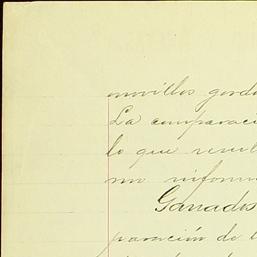 novillos gord
La comparaci
lo que resul
no inform
Ganados
paración de l